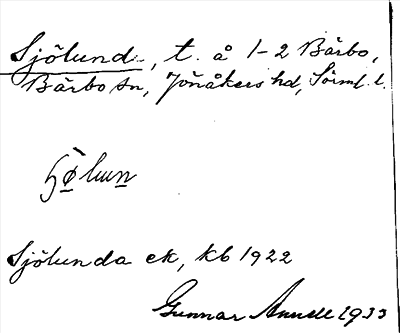 Sjölunda, t. å 1-2 Bärbo,
Bärbo sn, Jönåkers hd, Sörml. l.
Sjölunda ek, kb 1922
Gunnar 1933